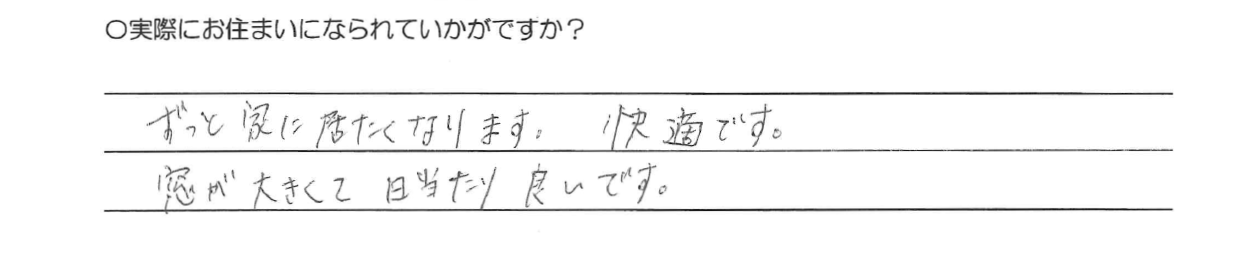 ○実際にお住まいになられていかがですか？
ずっと家に居たくなります。 快適です。
窓が大きくて 日当たり 良いです。